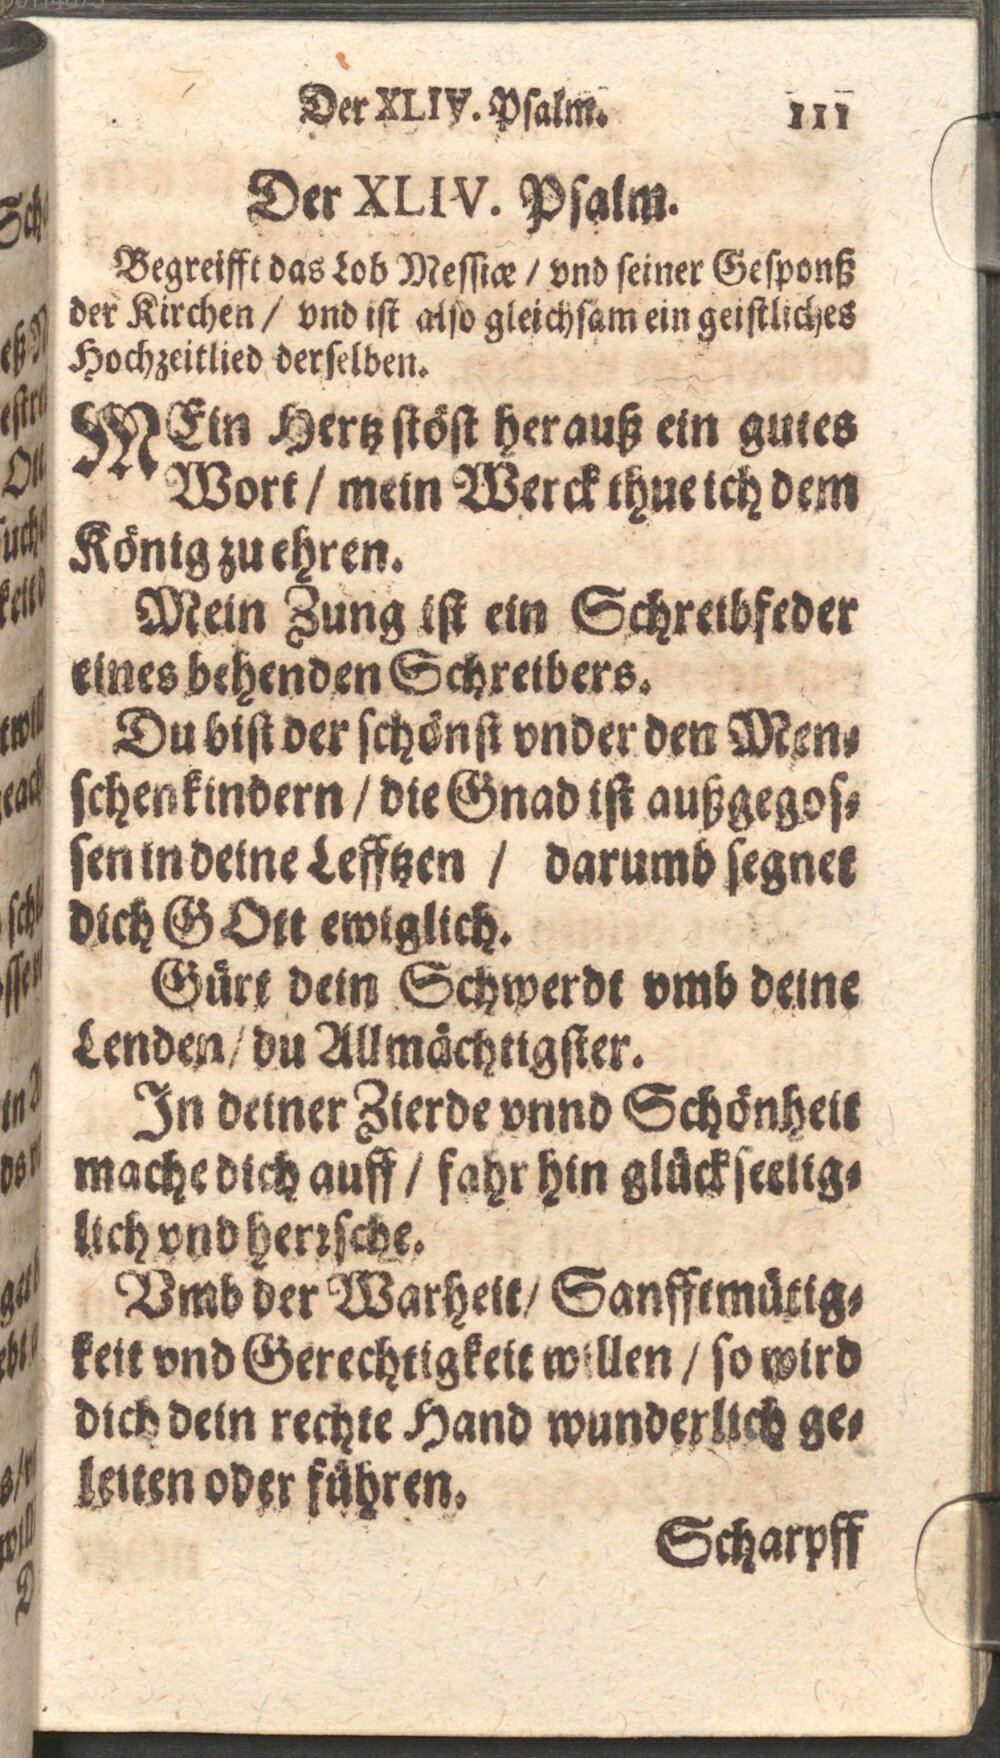 Der XLIV. Psalm. 111
Der XLIV. Psalm.
Begreifft das Lob Messiæ / vnd seiner Gesponß
der Kirchen / vnd ist also gleichsam ein geistliches
Hochzeitlied derselben.
MEin Hertz stöst herauß ein gutes
Wort / mein Werck thue ich dem
König zu ehren.
Mein Zung ist ein Schreibfeder
eines behenden Schreibers.
Du bist der schönst vnder den Men-
schenkindern / die Gnad ist außgegos-
sen in deine Lefftzen / darumb segnet
dich GOtt ewiglich.
Gürt dein Schwerdt vmb deine
Lenden / du Allmächtigster.
In deiner Zierde vnnd Schönheit
mache dich auff / fahr hin glückseelig-
lich vnd herzsche.
Vmb der Warheit / Sanfftmütig-
keit vnd Gerechtigkeit willen / so wird
dich dein rechte Hand wunderlich ge-
leiten oder führen.
Scharpff